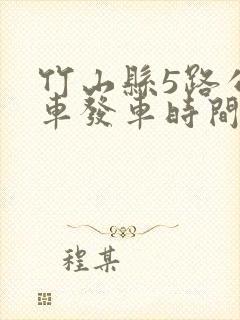 竹山縣5路公
車發車時間
程某